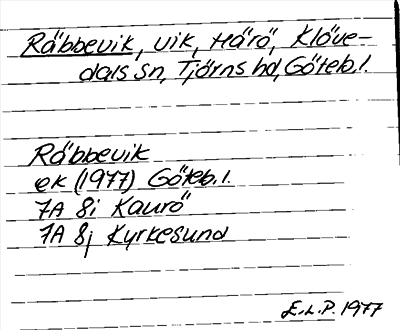 Räbbevik, vik, Härö, Klöve-
dals sn, Tjörns hd, Göteb. l.
Räbbevik
ek (1977) Göteb. l.
7A 8i Kaurö
7A 8j Kyrkesund
E.L.P. 1977